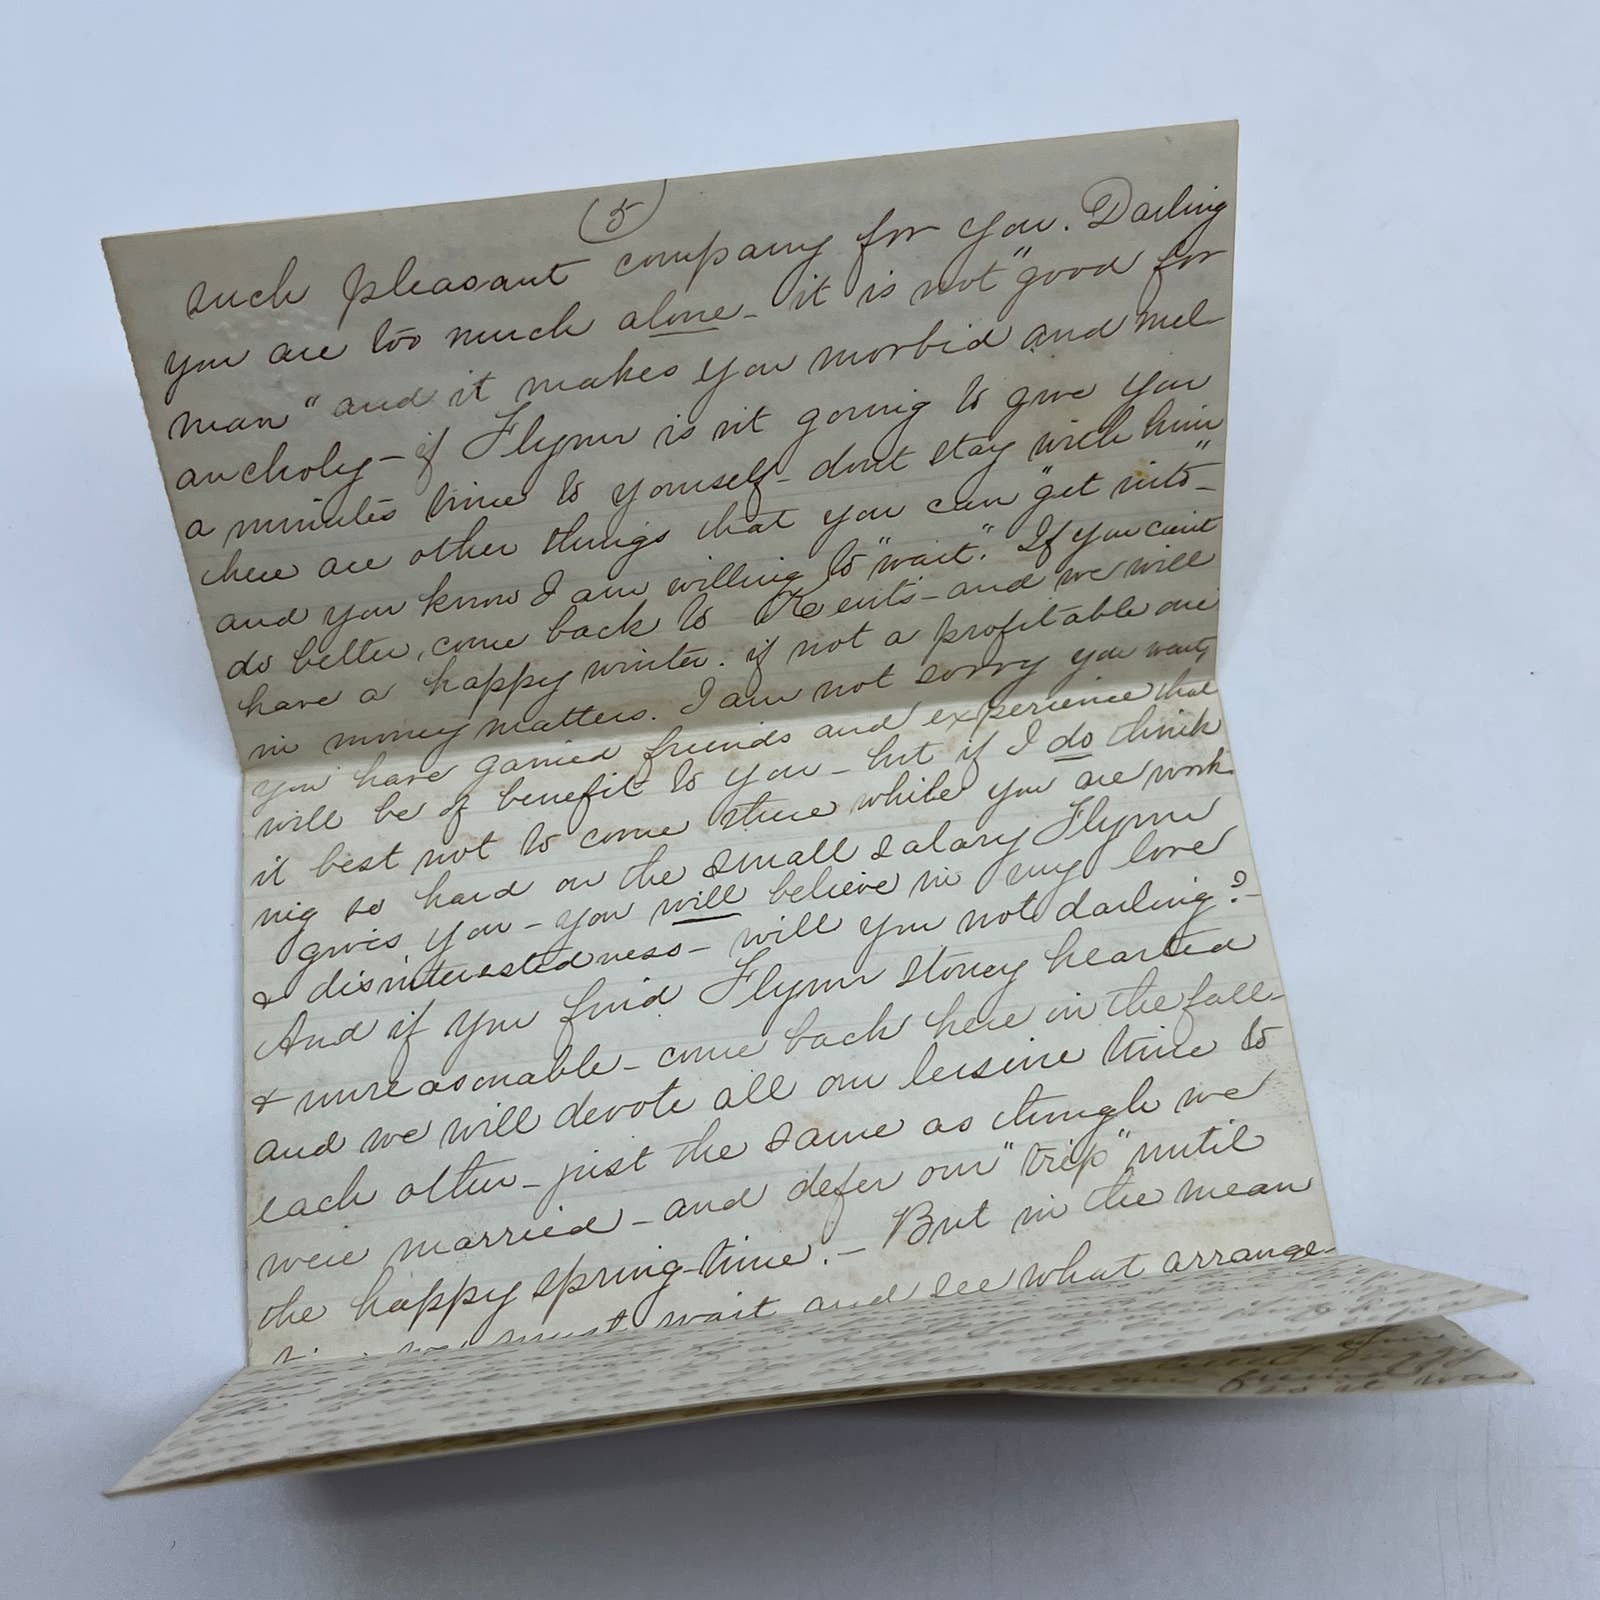 (5)
such pleasant company for you. Darling
you are too much alone - it is not "good for
man" and it makes you morbid and mel-
ancholy - if Flynn is nt going to give you
a minutes time to yourself - dont stay with him
there are other things that you can "get into" -
and you know I am willing to "wait". If you cant
do better, come back to Kents - and we will
have a happy winter. if not a profitable one
in money matters. I am not sorry you went,
you have gained friends and experience that
will be of benefit to you - but if I do think
it best not to come there while you are work
ing so hard on the small salary Flynn
gives you - you will believe in my love
& disinterestedness - will you not darling? -
And if you find Flynn stoney hearted
& unreasonable - come back here in the fall -
and we will devote all our leisure time to
each other - just the same as though we
were married - and defer our "trip" until
the happy spring-time. - But in the mean
must wait and see what arrange-